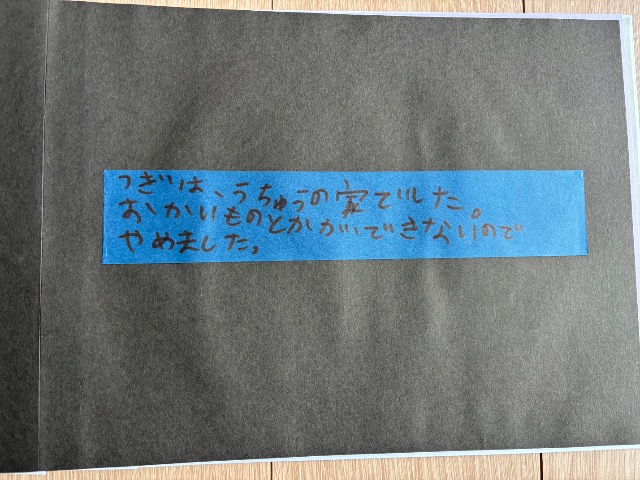 つぎは、うちゅうの家でした。
おかいものとかがいできないので
やめました。